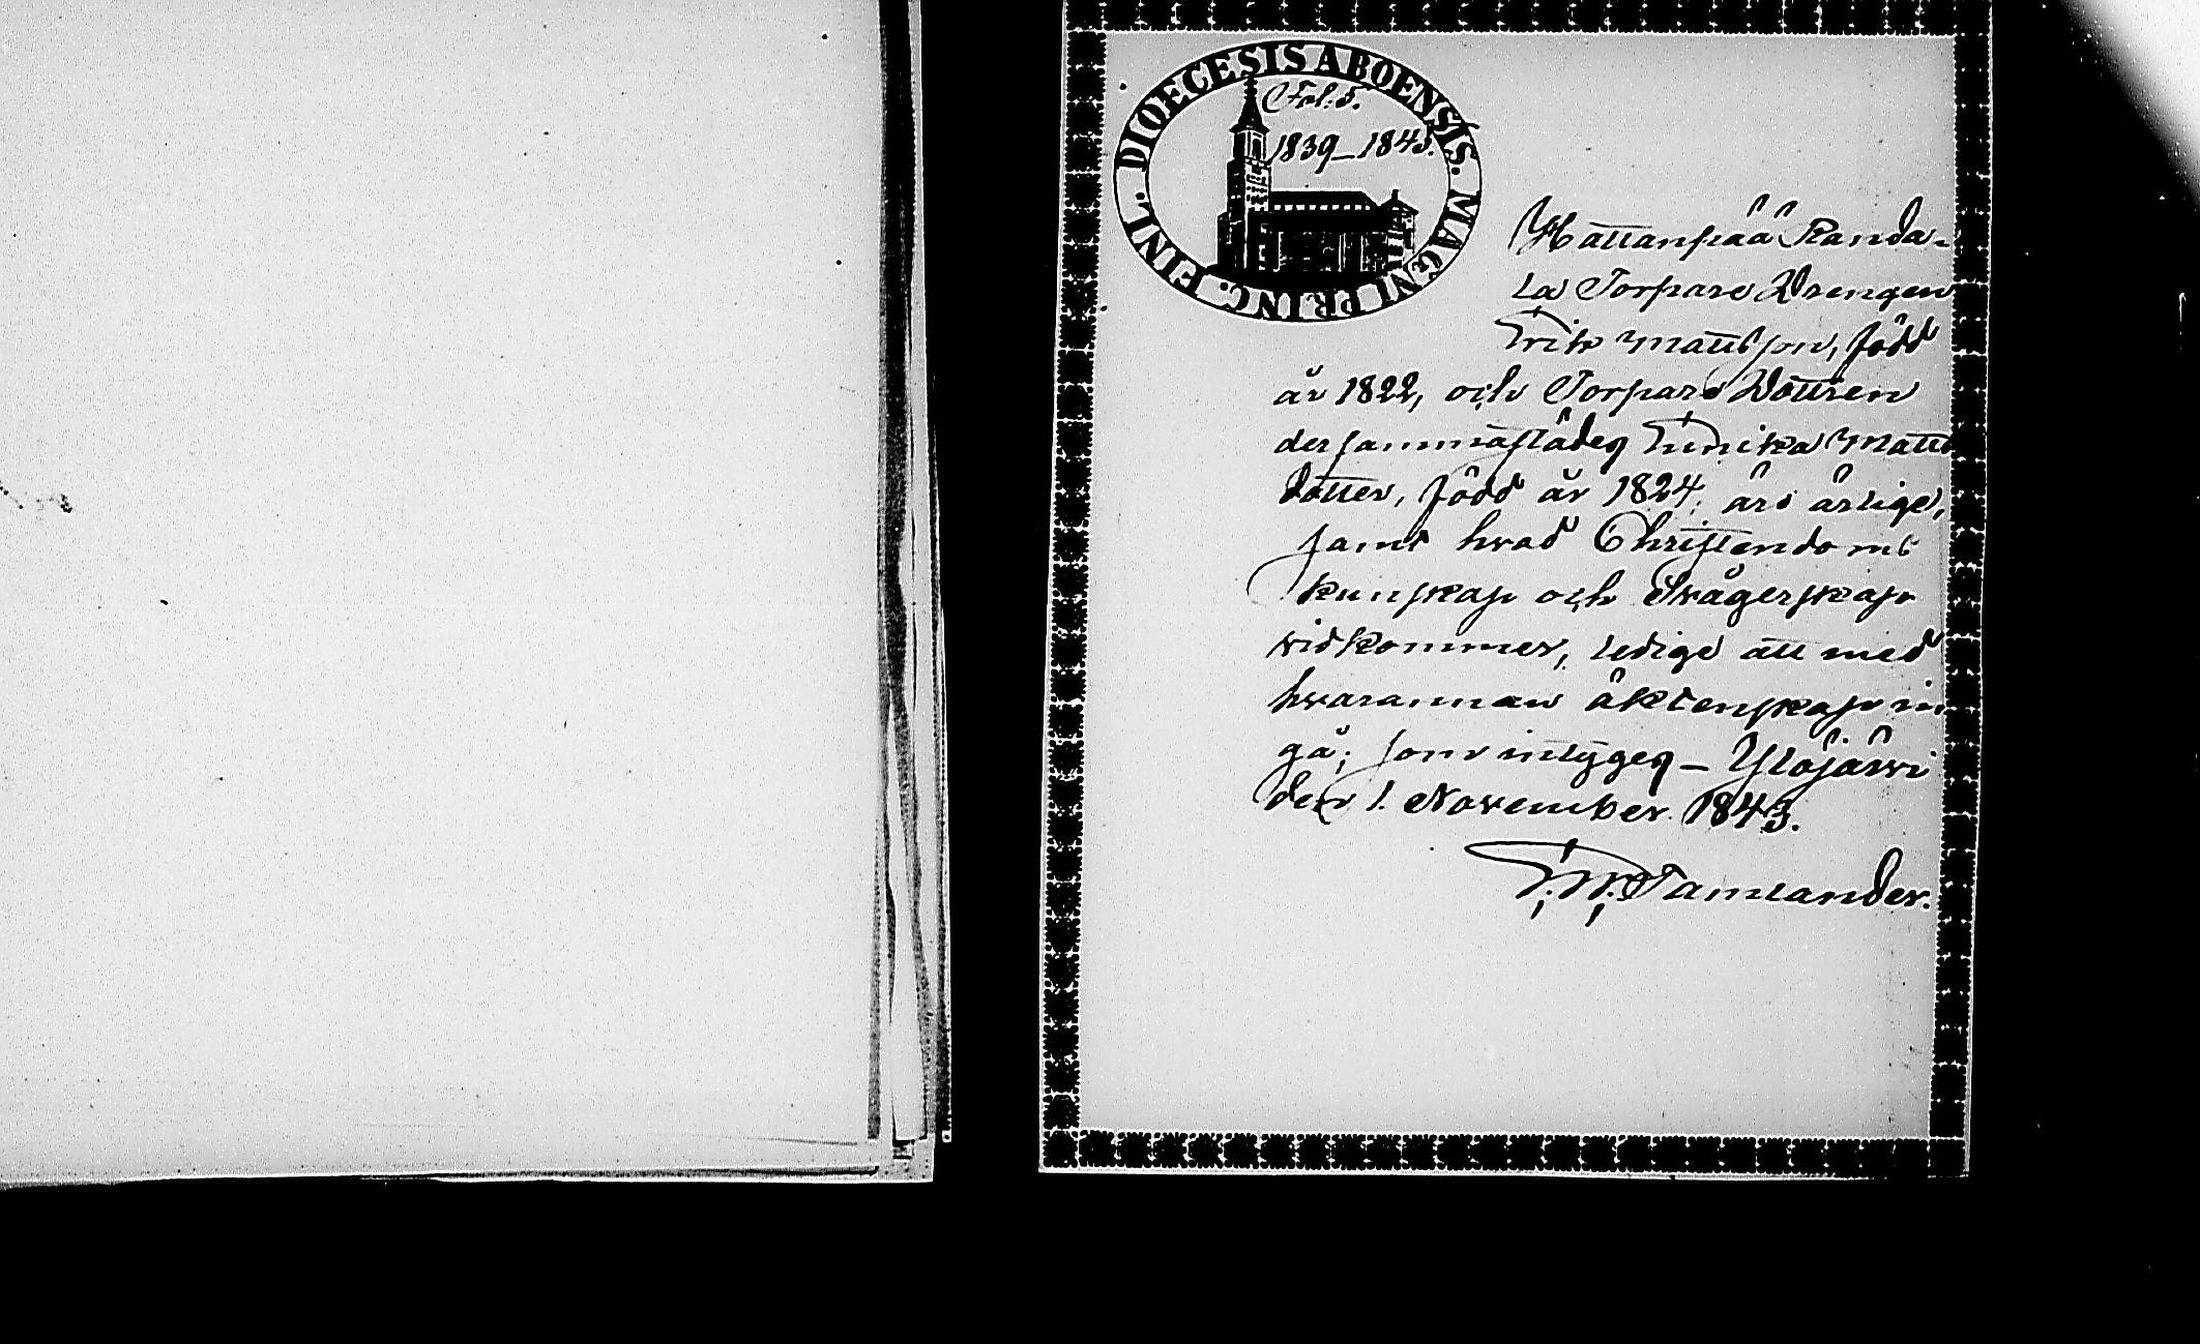 DIOECESIS ABOENSIS. MAGNI PRINC. FINL.
Fol: 5.
1839_1845.
Hattanpää Randa-
la Torpare Drengen
Erik Mattsson, född
år 1822, och Torpare Dottren
dersammastädes Ulrika Matts
dotter, född år 1824, äro ärlige,
samt hvad Christendoms
kunskap och Svågerskap
vidkommer, ledige att med
hvarannan äktenskap in
gå; som intygas _ Ylöjärvi
den 1. November 1843.
Tamlander.